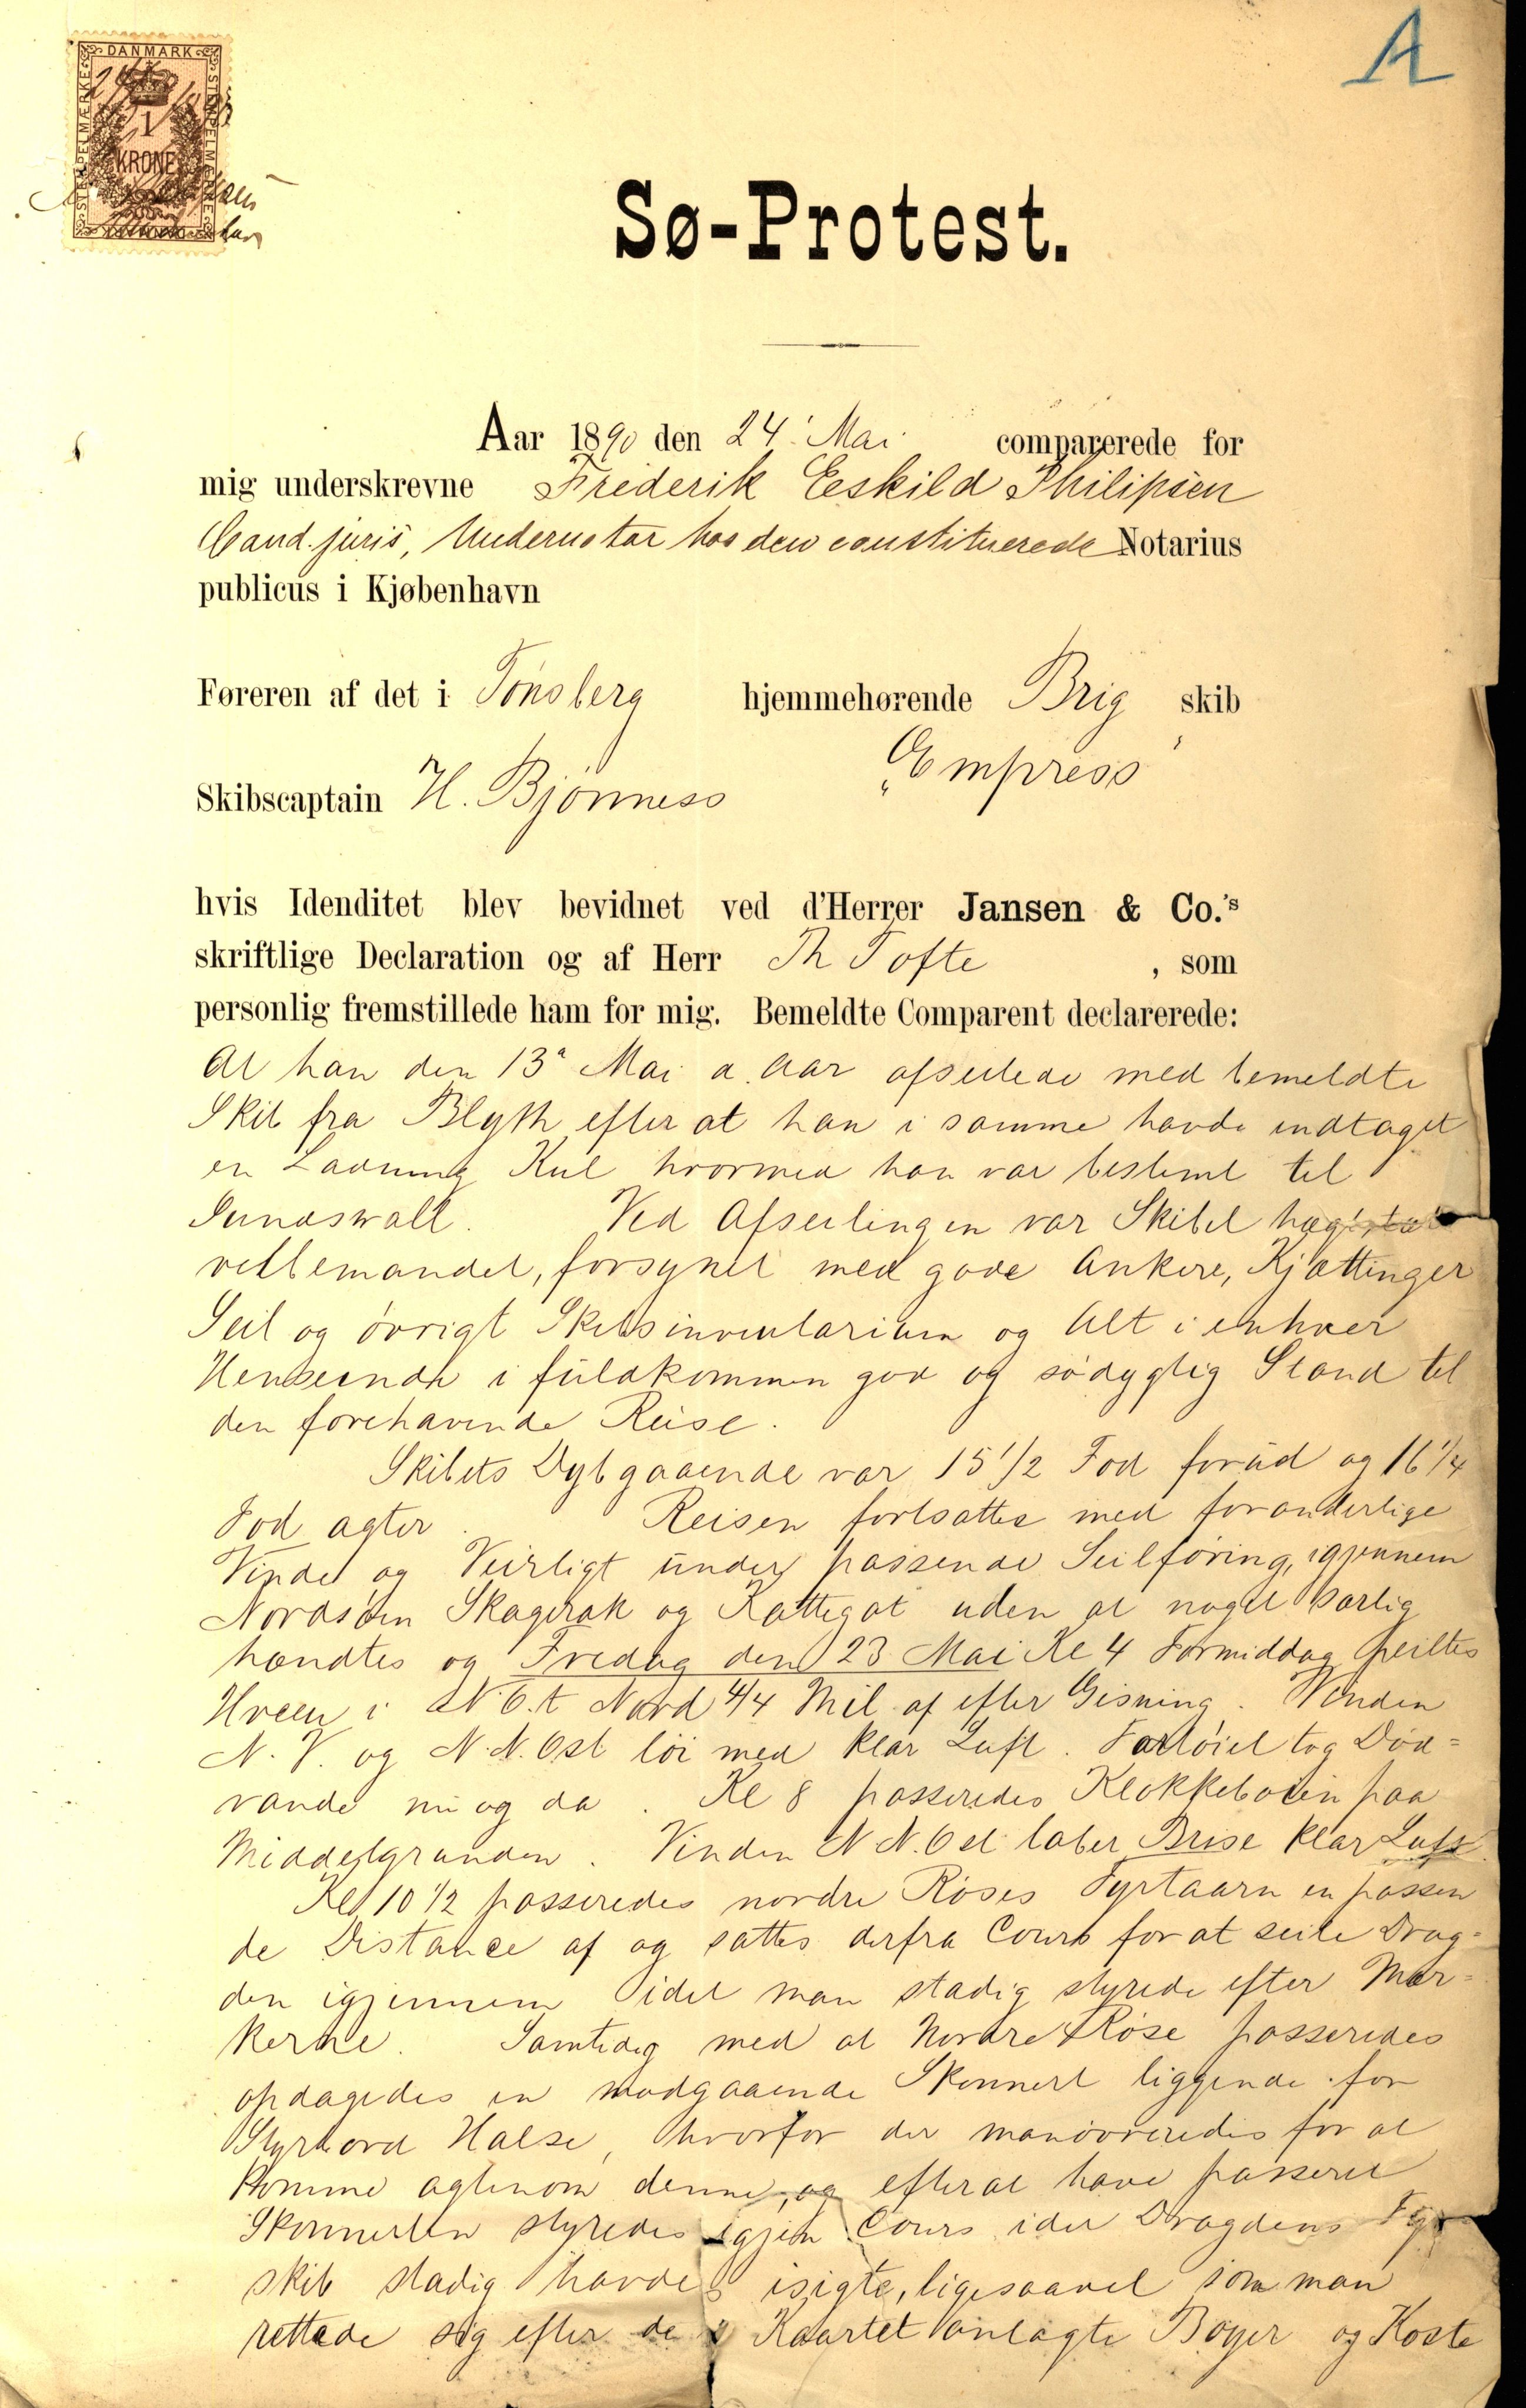 A
DANMARK
STEMPELMÆRKE
STEMPELMÆRKE
1
KRONE
Sø-Protest.
Aar 1890 den 24' Mai comparerede for
mig underskrevne Frederik Eeskild Philipsen
Cand. juris, Undernotar hos den constituerede Notarius
publicus i Kjøbenhavn
Føreren af det i Tönsberg hjemmehørende Brig skib
„Empress"
Skibscaptain H. Bjönness
hvis Idenditet blev bevidnet ved d'Herrer Jansen & Co.'s
skriftlige Declaration og af Herr Th Tofte , som
personlig fremstillede ham for mig. Bemeldte Comparent declarerede:
At han den 13' Mai d. Aar afseilede med bemeldte
Skib fra Blyth efter at han i samme havde indtaget
en Ladning Kul hvormed han var bestemt til
Sundswall. Ved Afseilingen var Skibet
velbemandet, forsynet med gode Ankere, Kjættinger
Seil og övrigt Skibsinventarium og Alt i enhver
Henseende i fuldkommen god og södygtig Stand til
den forehavende Reise.
Skibets Dybgaaende var 15 1/2 Fod forud og 16 1/4
Fod agter. Reisen fortsattes med foranderlige
Vinde og Veirligt under passende Seilföring, igjennem
Nordsöen Skagerak og Kattegat uden at noget særlig
hændtes og Fredag den 23 Mai Kl 4 Formiddag peiltes
Hveen i N.O.t Nord 4/4 Mil af efter Gisning. Vinden
N.V. og N.N.Ost löi med klar Luft. Fartöiet tog Död=
vande nu og da. Kl 8 passeredes Klokkeboien paa
Middelgrunden. Vinden N N.Ost laber Brise klar Luft
Kl 10 1/2 passeredes nordre Röses Fyrtaarn en passen
de Distance af og sattes derfra Cours for at seile Drog=
den igjennem idet man stadig styrede efter Mær=
kerne. Samtidig med at Nordre Röse passeredes
opdagedes en modgaaende Skonnert liggende for
Styrbord Halse, hvorfor der manövreredes for at
komme agtenom denne, og efterat have passeret
Skonnerten styredes igjen Cours idet Drogdens Fyr
skib stadig havdes isigte, ligesaavel som man
rettede sig efter de i Kaartet anlagte Böyer og Koste